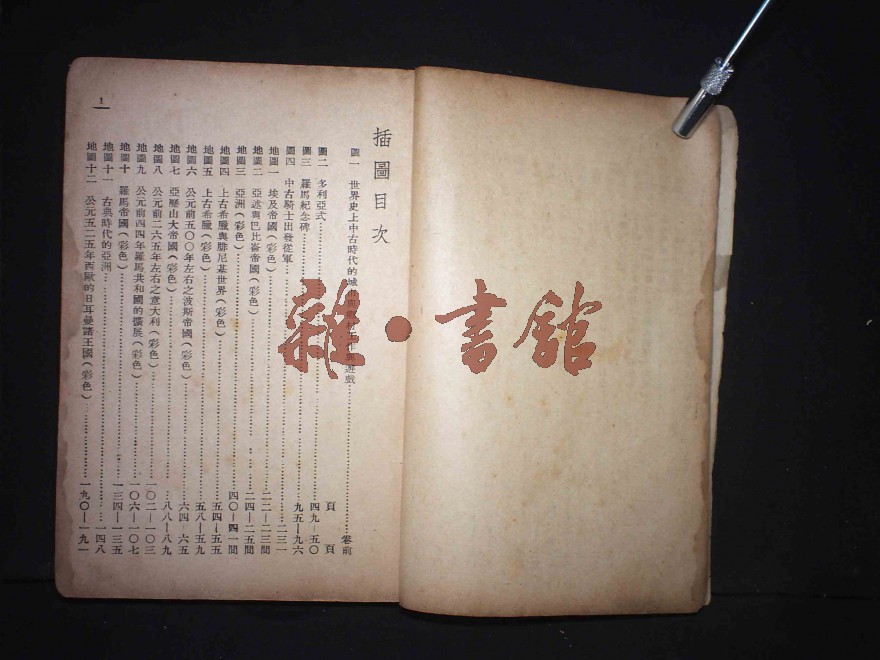 插圖目次
圖一 世界史上中古時代的城市 遊戲……卷前
圖二 多利亞式……四九—五〇頁
圖三 羅馬紀念碑……九五—九六頁
圖四 中古騎士出發從軍……二三一
地圖一 埃及帝國(彩色)……二二—二三間
地圖二 亞述與巴比崙帝國(彩色)……二四—二五間
地圖三 亞洲(彩色)……四〇—四一間
地圖四 上古希臘與腓尼基世界(彩色)……五四—五五
地圖五 上古希臘(彩色)……五八—五九
地圖六 公元前五〇〇年左右之波斯帝國(彩色)……六四—六五
地圖七 亞歷山大帝國(彩色)……八八—八九
地圖八 公元前二六五年左右之意大利(彩色)……一〇二—一〇三
地圖九 公元前四四年羅馬共和國的擴展(彩色)……一〇六—一〇七
地圖十 羅馬帝國(彩色)……一三四—一三五
地圖十一 古典時代的亞洲……一四八
地圖十二 公元五二五年西歐的日耳曼諸王國(彩色)……一九〇—一九一
1
雜·書館